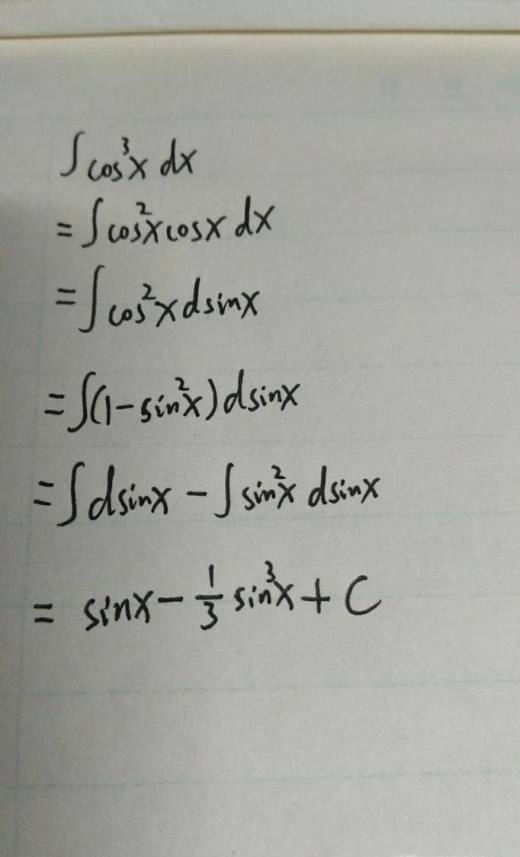 ∫cos³x dx
= ∫cos²x cosx dx
= ∫cos²x dsinx
= ∫(1-sin²x) dsinx
= ∫dsinx - ∫sin²x dsinx
= sinx - 1/3 sin³x + C